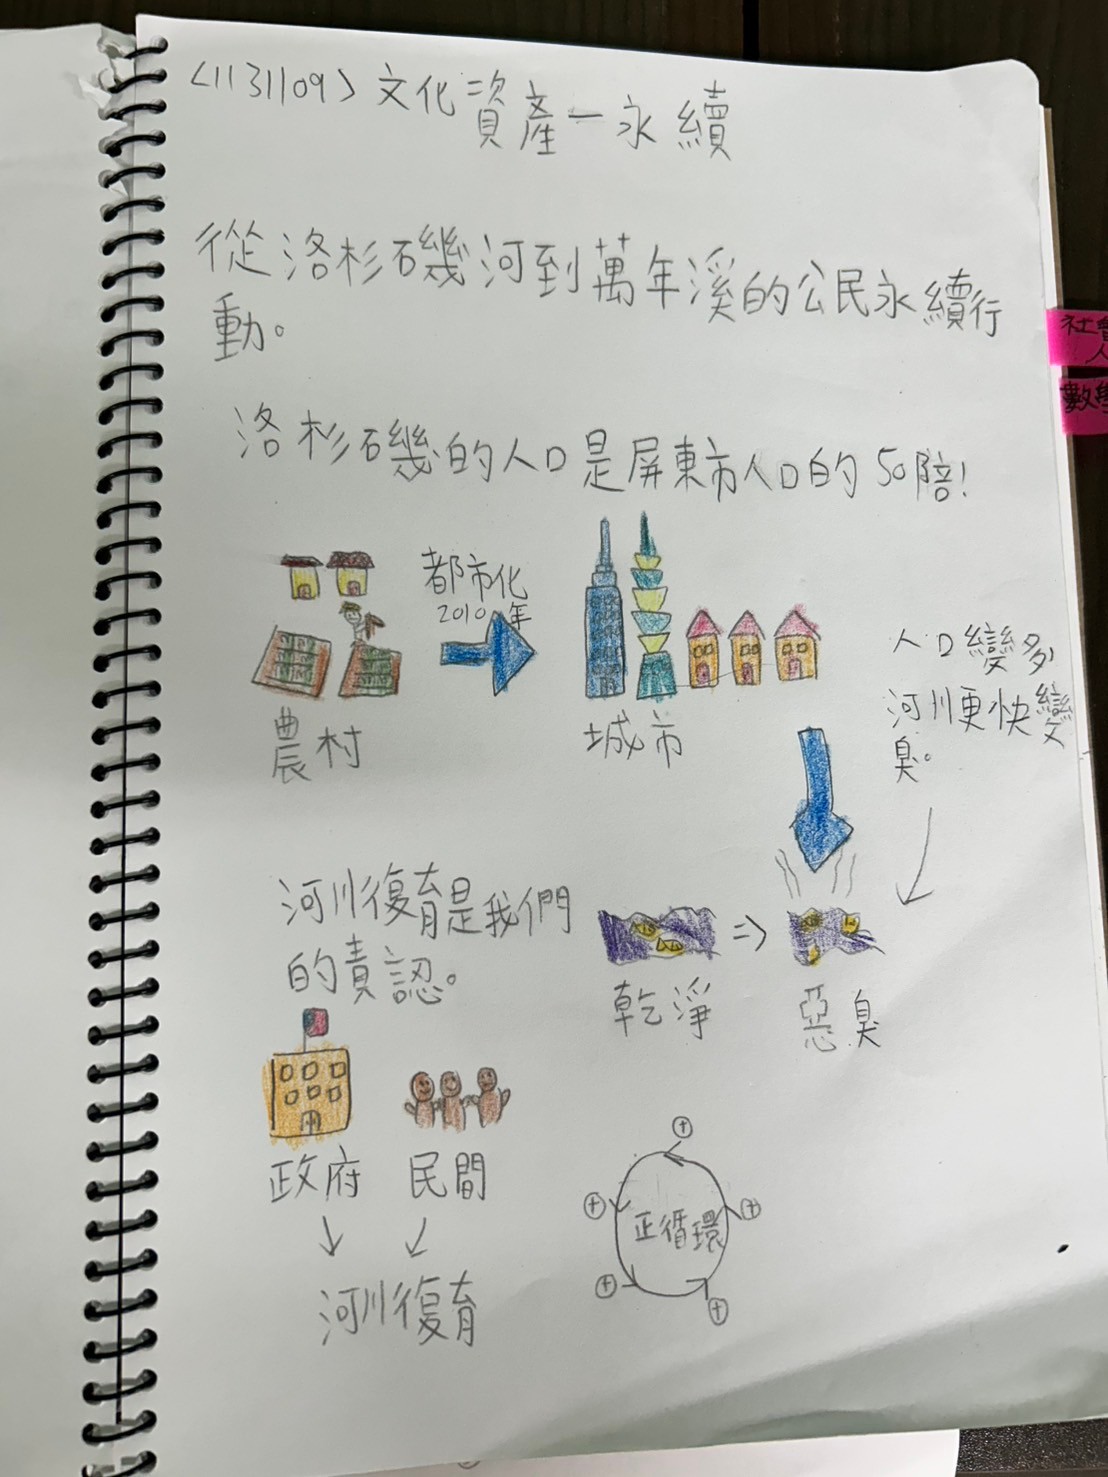 <1131109>文化資產－永續
從洛杉磯河到萬年溪的公民永續行
動。
洛杉磯的人口是屏東市人口的50陪!
都市化
2010年
農村
城市
人口變多
河川更快變
臭。
河川復育是我們
的責認。
乾淨
=>
惡臭
政府
民間
河川復育
正循環
+
+
+
+
+
數學